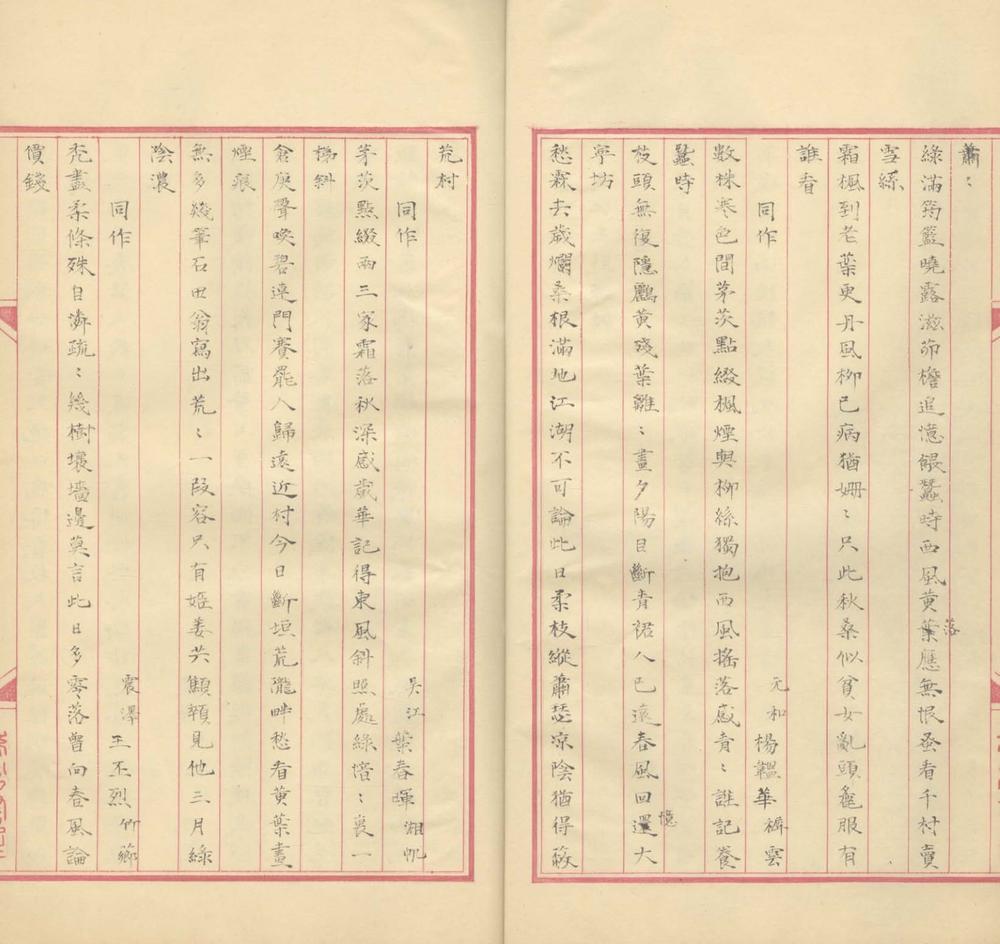 蕭〻
綠滿筠籃曉露滋茆檐追憶餵蠶時西風黄葉落應無恨蚤看千村賣
雪絲
霜楓到老葉更丹風柳已病猶姍〻只此秋桑似貧女亂頭麤服有
誰看
同作 元和 楊韞華 稱雲
數株寒色間茅茨點綴楓煙與柳絲獨抱西風搖落感青〻誰記養
蠶時
枝頭無復隱鸝黄殘葉離〻畫夕陽目斷青裙人已遠春風回憶還大
寧坊
愁霖去歲爛桑根滿地江湖不可論此日柔枝縱蕭瑟凉陰猶得蔽
荒村
同作 吴江 葉春暉 湘帆
茅茨點綴兩三家霜落秋深感歲華記得東風斜照處綠堷〻裏一
梯斜
倉庚聲喚碧連門賽罷人歸遠近村今日斷垣荒隴畔愁看黄葉畫
煙痕
無多幾筆石田翁寫出荒〻一段容只有姬姜共顦顇見他三月綠
陰濃
同作 震澤 王丕烈 竹薌
禿盡柔條殊自憐疏〻幾樹壞墻邊莫言此日多零落曾向春風論
價錢